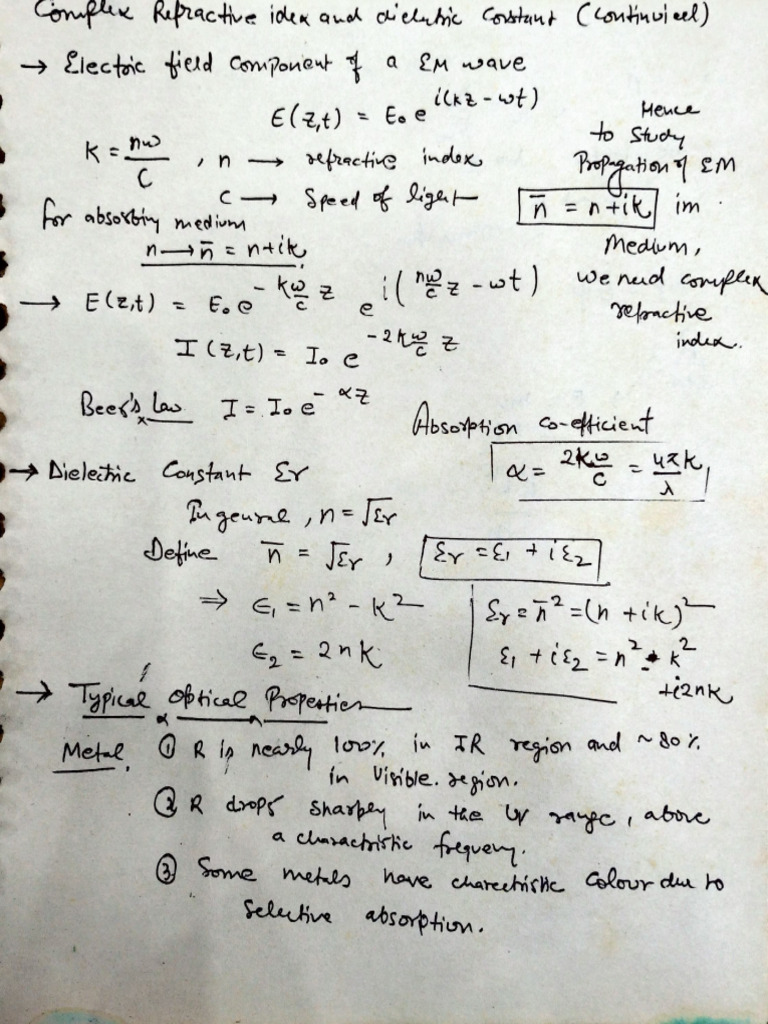 Complex Refractive idex and dielectric Constant (Continuied)
→ Electric field component of a EM wave
E(z,t) = E₀ e^{i(kz - ωt)}
K = nω/c , n → refractive index
c → Speed of light
for absorbing medium
n → n̄ = n+ik
Hence
to study
Propagation of EM
n̄ = n+ik im
Medium,
we need complex
refractive
index.
→ E(z,t) = E₀ e^{-kω/c z} e^{i(nω/c z - ωt)}
I(z,t) = I₀ e^{-2kω/c z}
Beer's Law I = I₀ e^{-αz}
Absorption co-efficient
α = 2kω/c = 4πk/λ
→ Dielectric Constant εr
In general, n = √εr
Define n̄ = √εr , εr = ε₁ + iε₂
⇒ ε₁ = n² - k²
ε₂ = 2nk
εr = n̄² = (n + ik)²
ε₁ + iε₂ = n² - k²
+i2nk
→ Typical Optical Properties
Metal. ① R is nearly 100% in IR region and ~80%
in Visible region.
② R drops sharply in the UV range, above
a charactristic frequency.
③ Some metals have charectristic colour due to
Selective absorption.